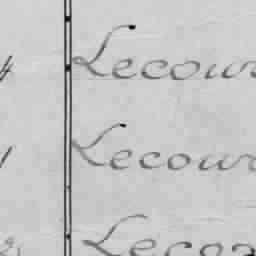 4 Lecour
1 Lecour
Leco